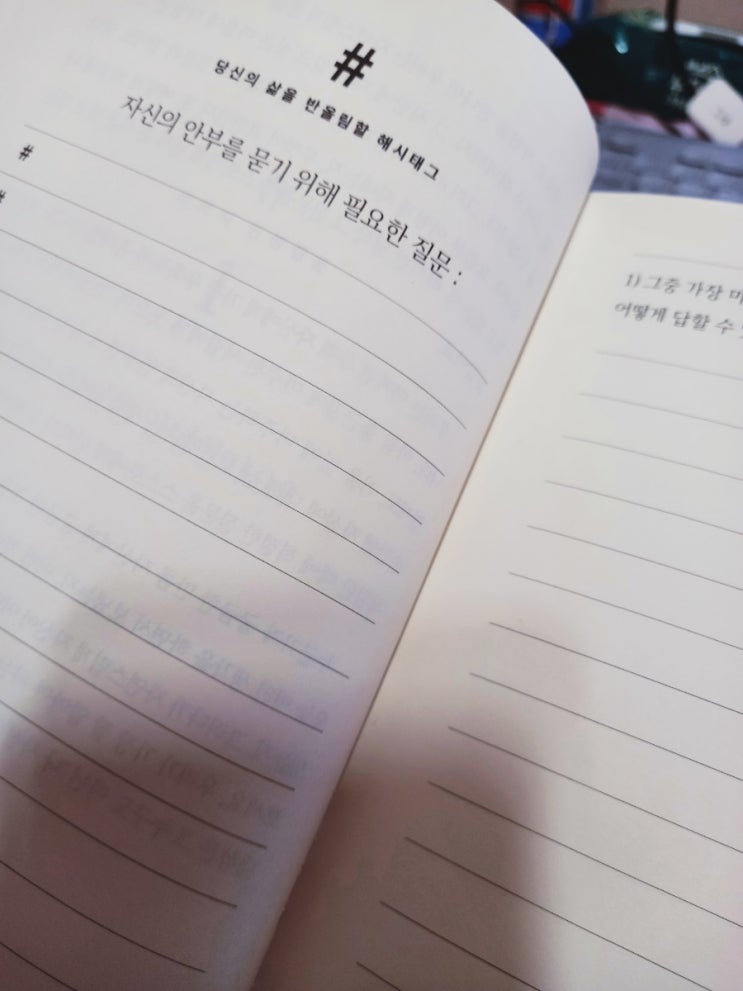 #
당신의 삶을 반올림할 해시태그
자신의 안부를 묻기 위해 필요한 질문 :
#
#
1) 그중 가장
어떻게 답할 수